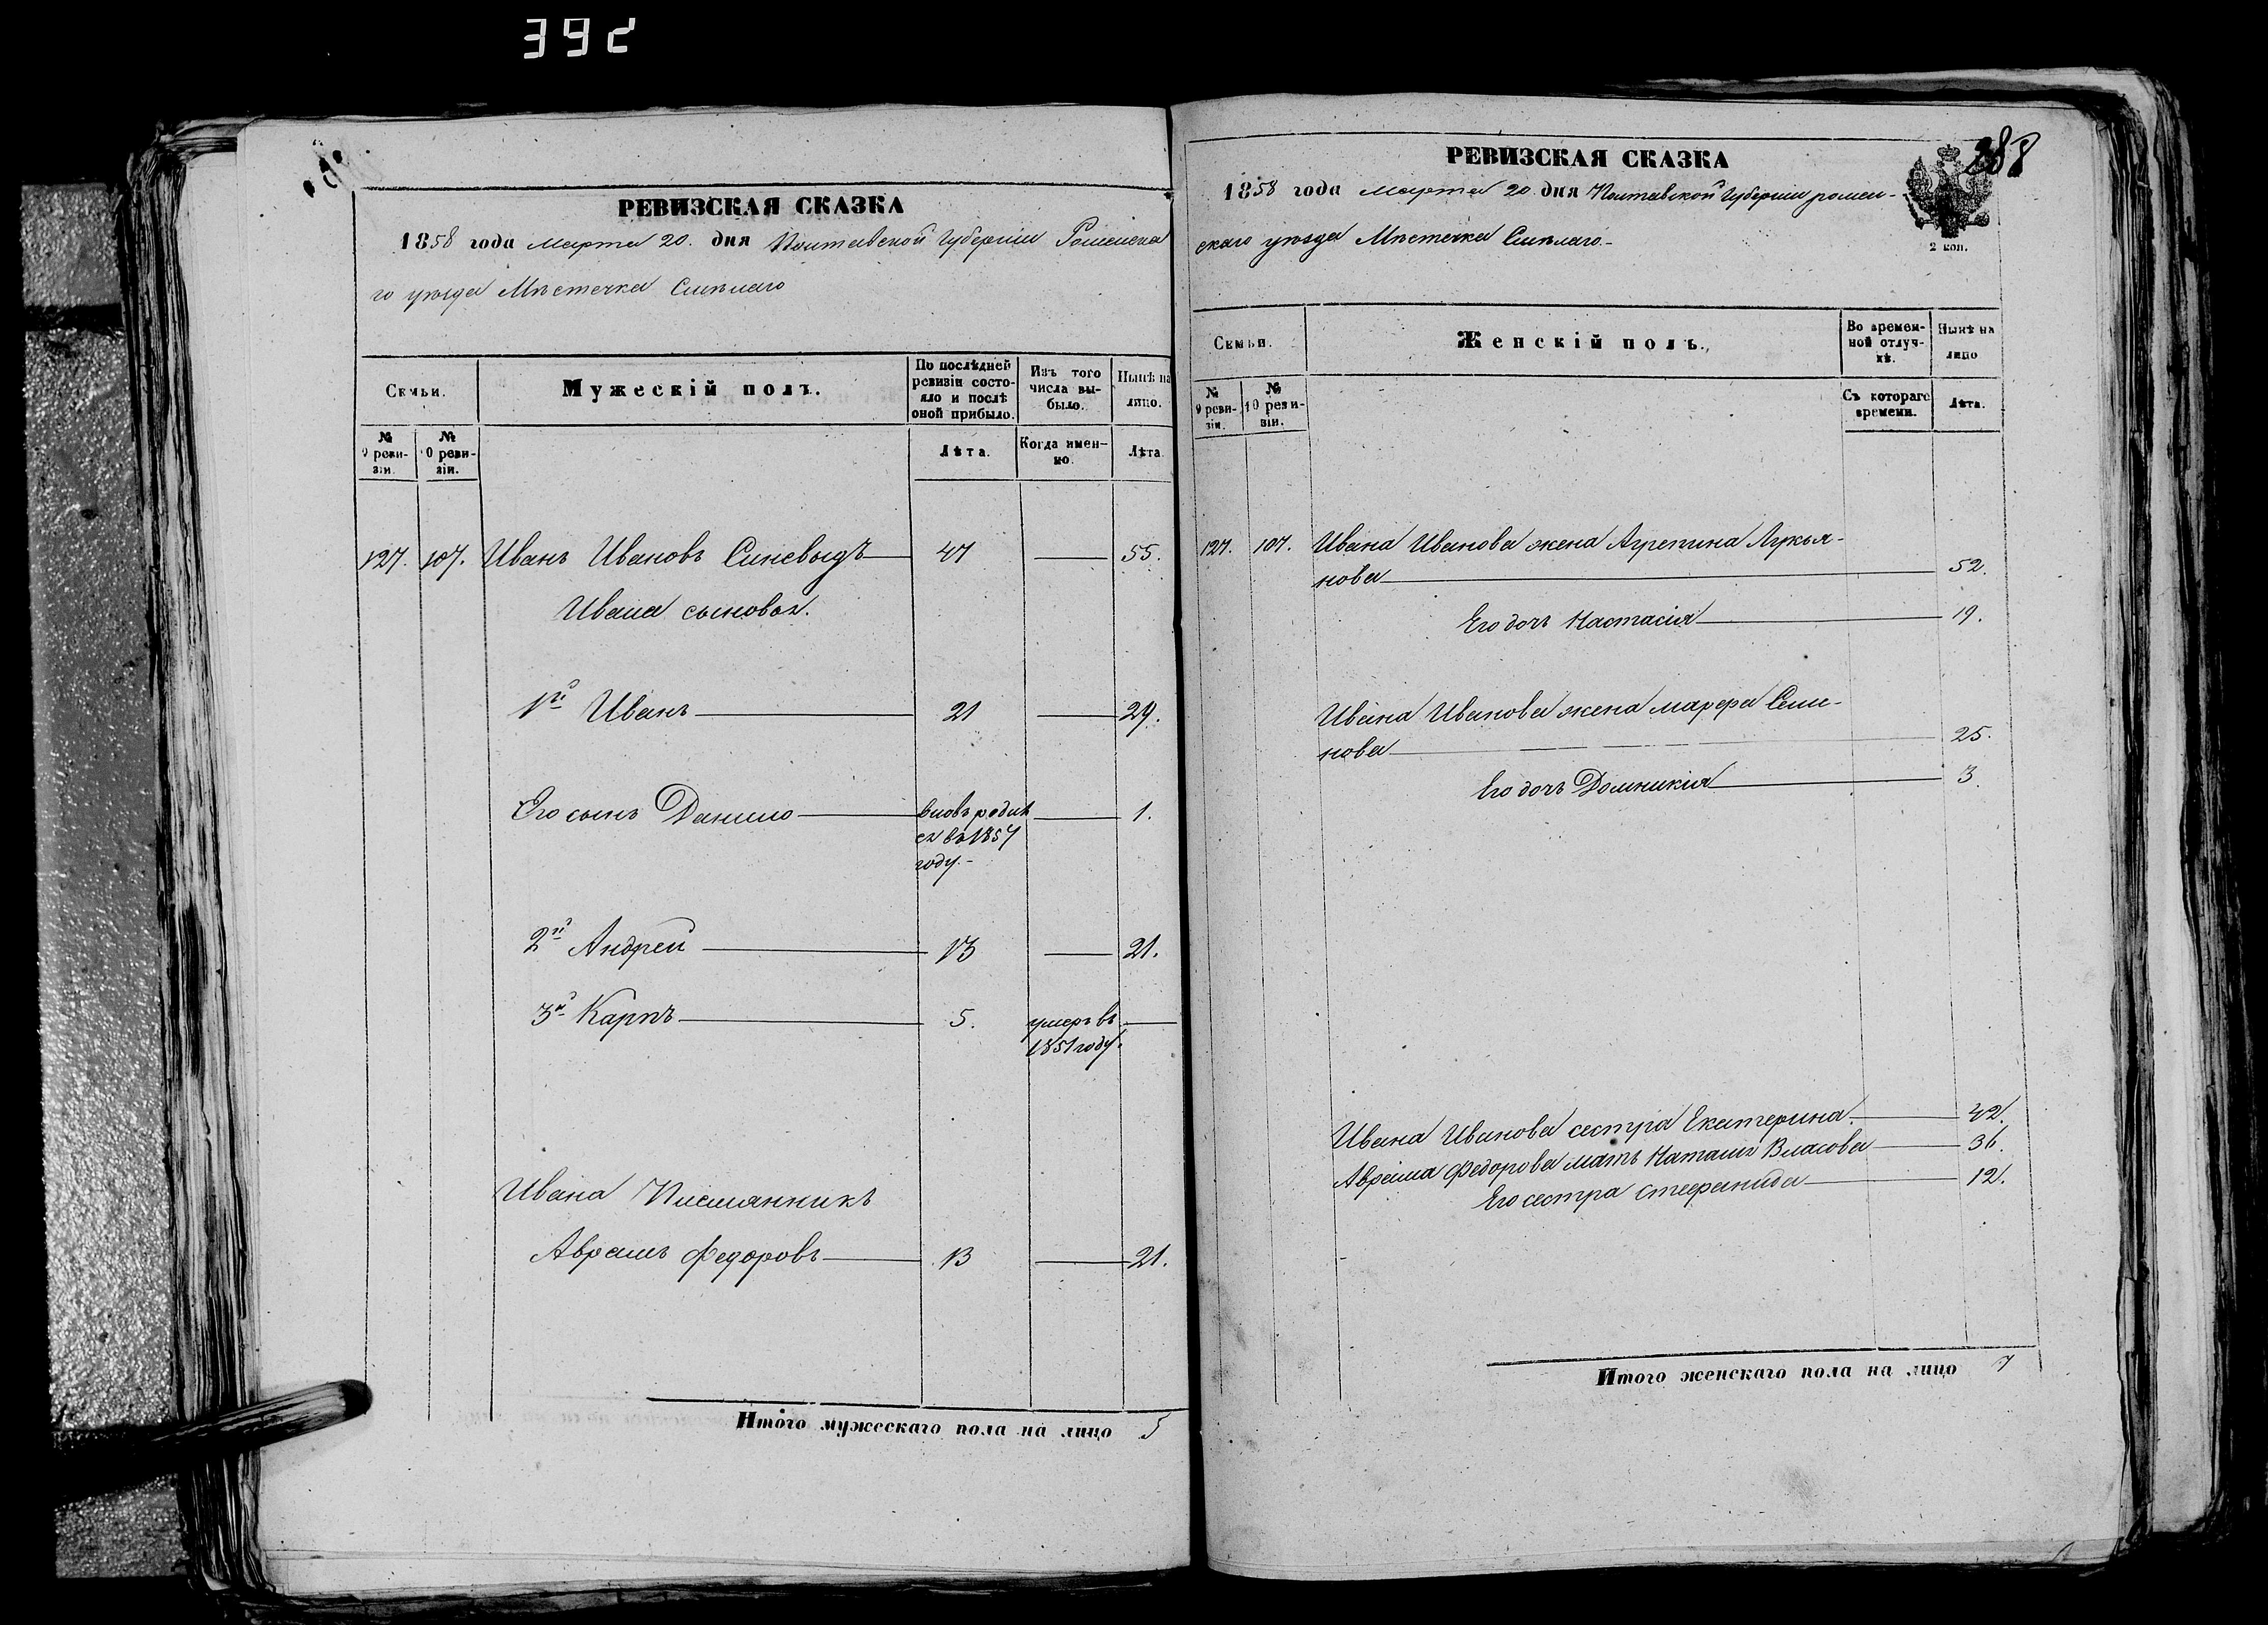 392
РЕВИЗСКАЯ СКАЗКА
1858 года марта 20. дня Полтавской Губерніи Роменска
го уѣзда Мѣстечка Смѣлаго
Семьи.
Мужескій полъ.
По послѣдней ревизіи состояло и послѣ оной прибыло.
Изъ того числа выбыло.
Нынѣ на лицо.
№ 9 ревизіи.
№ 10 ревизіи.
Лѣта.
Когда именно.
Лѣта.
127. 107. Иванъ Ивановъ Синевыдъ 47 55.
Ивана сыновья.
1й Иванъ 21 29.
Его сынъ Данило вновь родил 1.
ся въ 1857
году.
2й Андрей 13 21.
3й Карпъ 5. умеръ въ
1851 году.
Ивана Племянникъ
Аврамъ Федоровъ 13 21.
Итого мужескаго пола на лицо 5
288
РЕВИЗСКАЯ СКАЗКА
1858 года марта 20. дня Полтавской Губерніи ромен-
скаго уѣзда Мѣстечка Смѣлаго.
2 коп.
Семьи.
Женскій полъ.
Во временной отлучкѣ.
Нынѣ на лицо
№ 9 ревизіи.
№ 10 ревизіи.
Съ котораго времени.
Лѣта.
127. 107. Ивана Иванова жена Агрепина Лукья-
нова 52.
Его дочь Настасія 19.
Ивана Иванова жена марфа Семе-
нова 25.
Его дочь Домникія 3.
Ивана Иванова сестра Екатерина 42.
Аврама Федорова мать Наталія Власова 36.
Его сестра Стефанида 12.
Итого женскаго пола на лицо 7